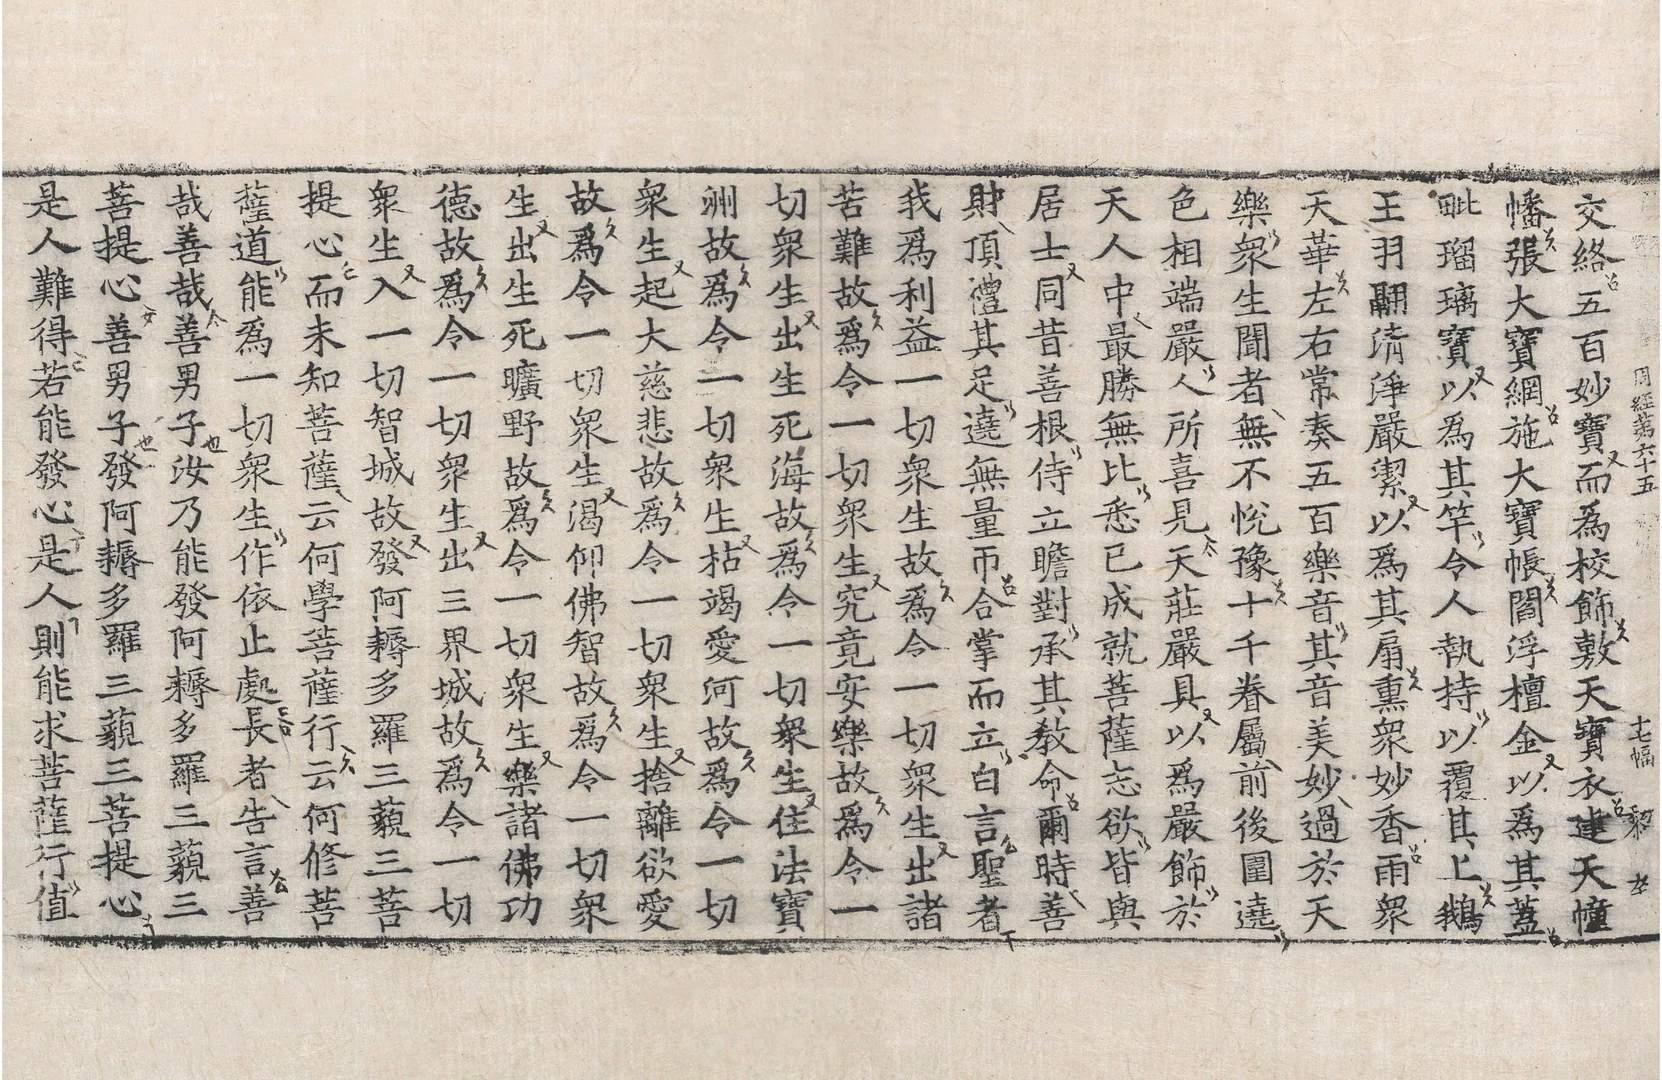 周經第六十五　十七幅　黎
交絡五百妙寶而為校飾敷天寶衣建天幢
幡張大寶網施大寶帳閻浮檀金以為其蓋
毗瑠璃寶以為其竿令人執持以覆其上鵝
王羽翮清淨嚴潔以為其扇熏衆妙香雨衆
天華左右常奏五百樂音其音美妙過於天
樂衆生聞者無不悅豫十千眷屬前後圍遶
色相端嚴人所喜見天莊嚴具以為嚴飾於
天人中最勝無比悉已成就菩薩志欲皆與
居士同昔善根侍立瞻對承其教命爾時善
財頂禮其足遶無量帀合掌而立白言聖者
我為利益一切衆生故為令一切衆生出諸
苦難故為令一切衆生究竟安樂故為令一
切衆生出生死海故為令一切衆生住法寶
洲故為令一切衆生枯竭愛河故為令一切
衆生起大慈悲故為令一切衆生捨離欲愛
故為令一切衆生渴仰佛智故為令一切衆
生出生死曠野故為令一切衆生樂諸佛功
德故為令一切衆生出三界城故為令一切
衆生入一切智城故發阿耨多羅三藐三菩
提心而未知菩薩云何學菩薩行云何修菩
薩道能為一切衆生作依止處長者告言善
哉善哉善男子汝乃能發阿耨多羅三藐三
菩提心善男子發阿耨多羅三藐三菩提心
是人難得若能發心是人則能求菩薩行值